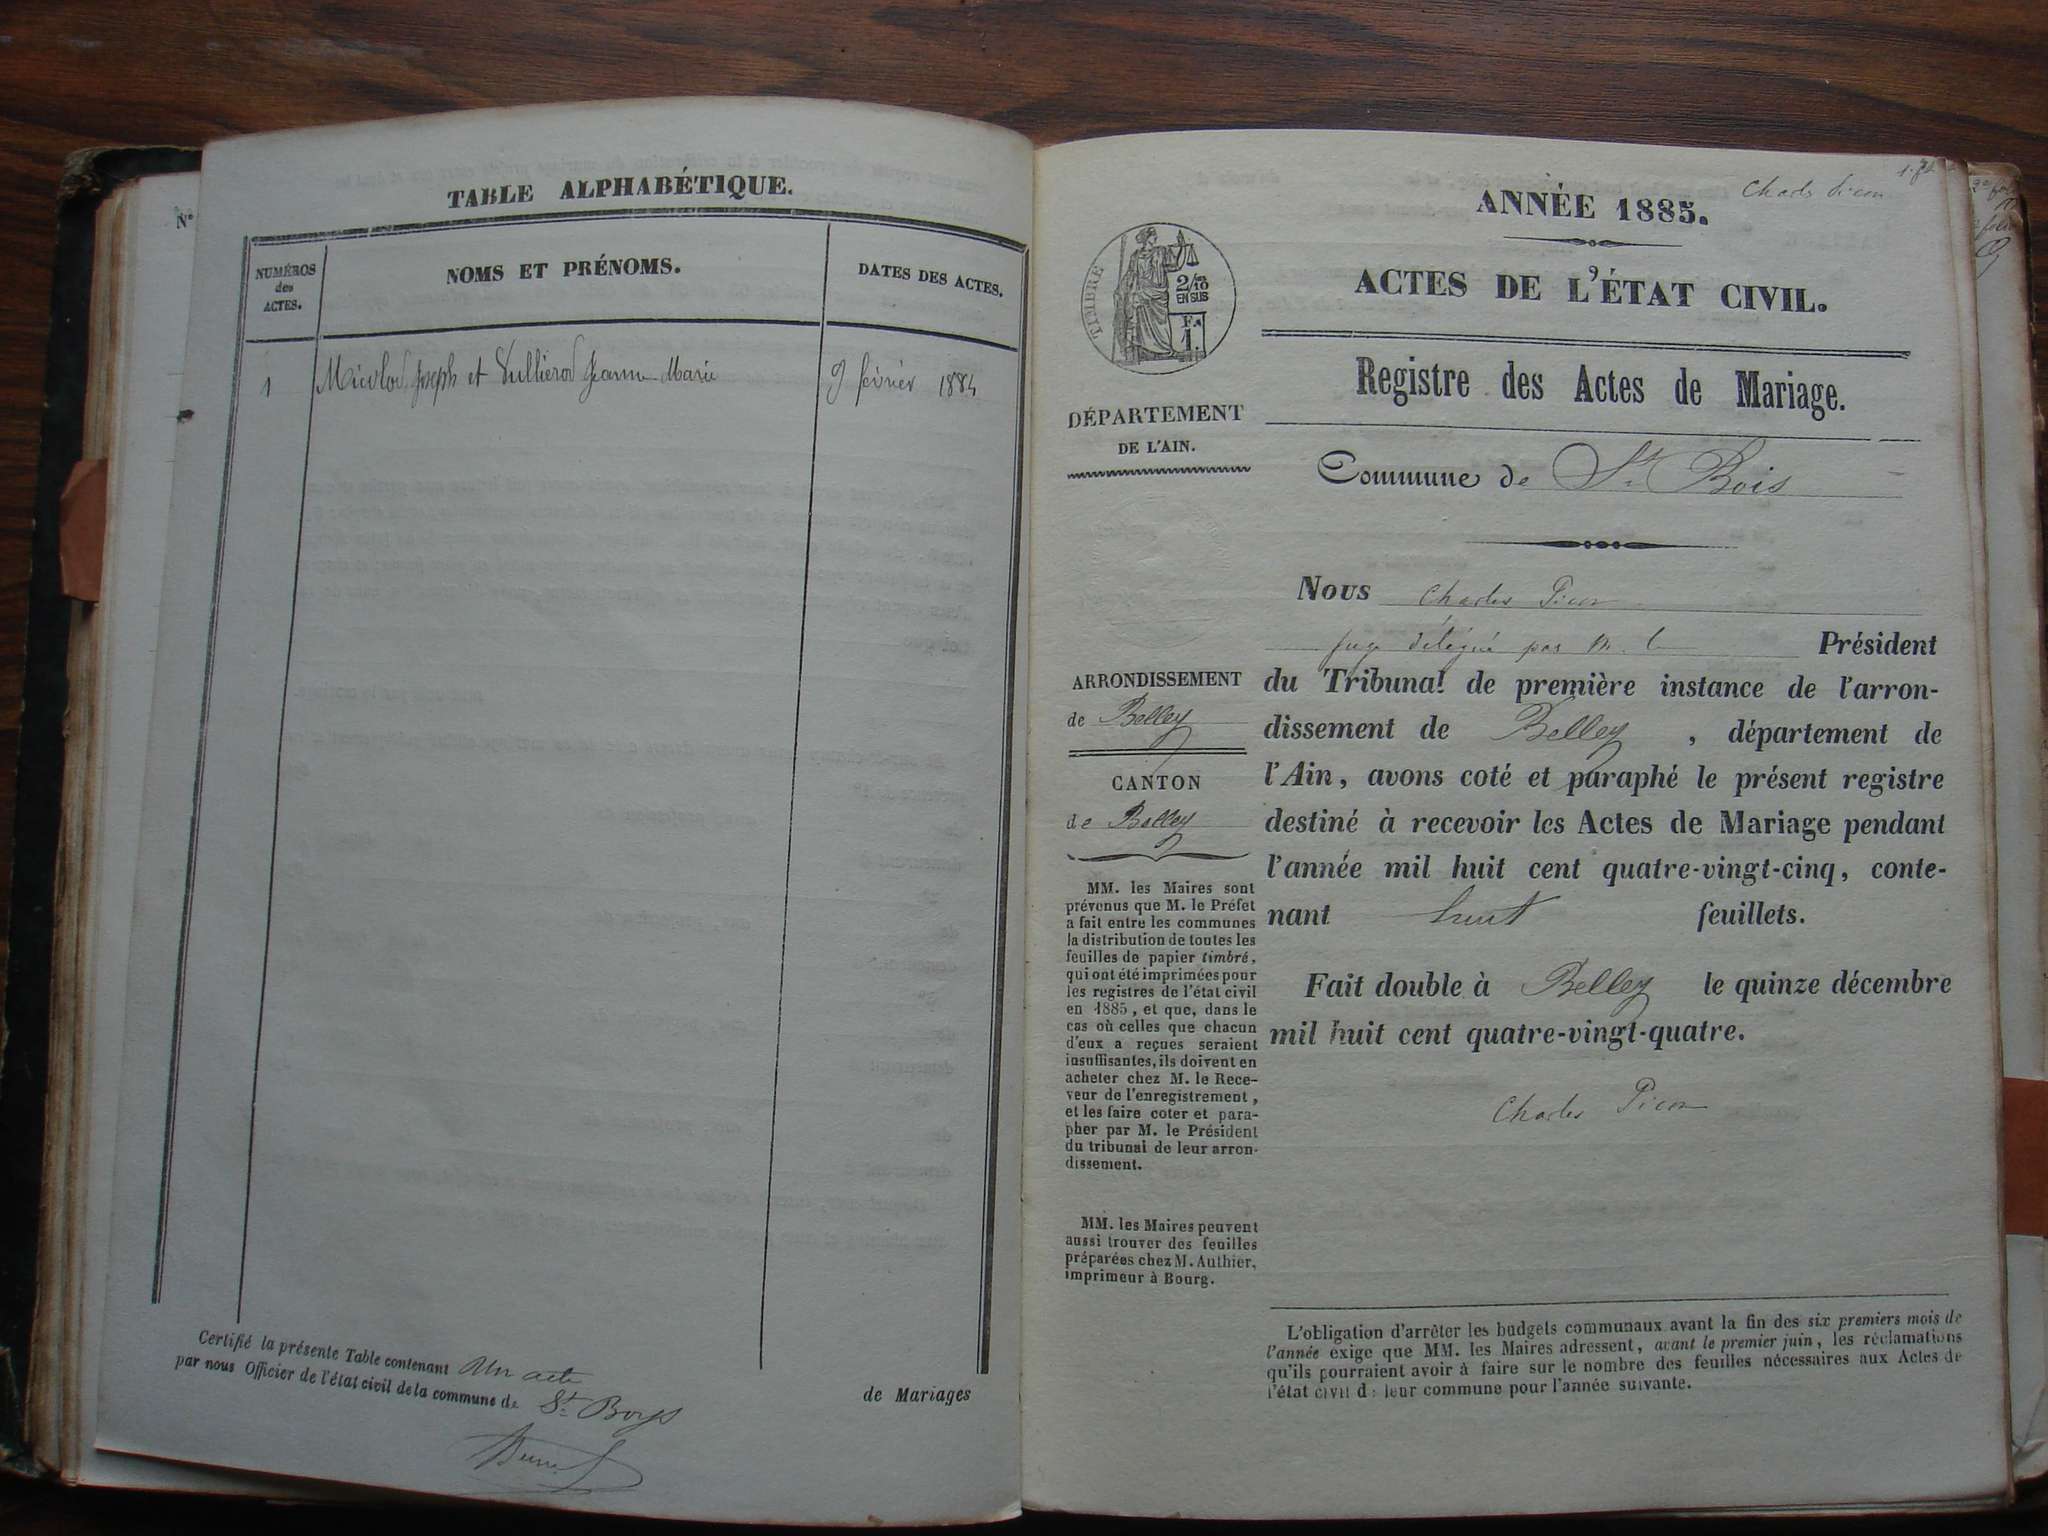 TABLE ALPHABÉTIQUE.
NUMÉROS
des
ACTES.
NOMS ET PRÉNOMS.
DATES DES ACTES.
1 Joseph et Jeanne Marie 9 février 1884
Certifié la présente Table contenant Un acte de Mariages
par nous Officier de l'état civil de la commune de St Boys
N°
Charles Picon
ANNÉE 1885.
ACTES DE L'ÉTAT CIVIL.
TIMBRE
2/10
EN SUS
1.
Registre des Actes de Mariage.
DÉPARTEMENT
DE L'AIN.
Commune de St Bois
Nous Charles Picon
juge délégué par M. le Président
du Tribunal de première instance de l'arron-
dissement de Belley, département de
l'Ain, avons coté et paraphé le présent registre
destiné à recevoir les Actes de Mariage pendant
l'année mil huit cent quatre-vingt-cinq, conte-
nant huit feuillets.
Fait double à Belley le quinze décembre
mil huit cent quatre-vingt-quatre.
Charles Picon
ARRONDISSEMENT
de Belley
CANTON
de Belley
MM. les Maires sont
prévenus que M. le Préfet
a fait entre les communes
la distribution de toutes les
feuilles de papier timbré,
qui ont été imprimées pour
les registres de l'état civil
en 1885, et que, dans le
cas où celles que chacun
d'eux a reçues seraient
insuffisantes, ils doivent en
acheter chez M. le Rece-
veur de l'enregistrement,
et les faire coter et para-
pher par M. le Président
du tribunal de leur arron-
dissement.
MM. les Maires peuvent
aussi trouver des feuilles
préparées chez M. Authier,
imprimeur à Bourg.
L'obligation d'arrêter les budgets communaux avant la fin des six premiers mois de
l'année exige que MM. les Maires adressent, avant le premier juin, les réclamations
qu'ils pourraient avoir à faire sur le nombre des feuilles nécessaires aux Actes de
l'état civil de leur commune pour l'année suivante.